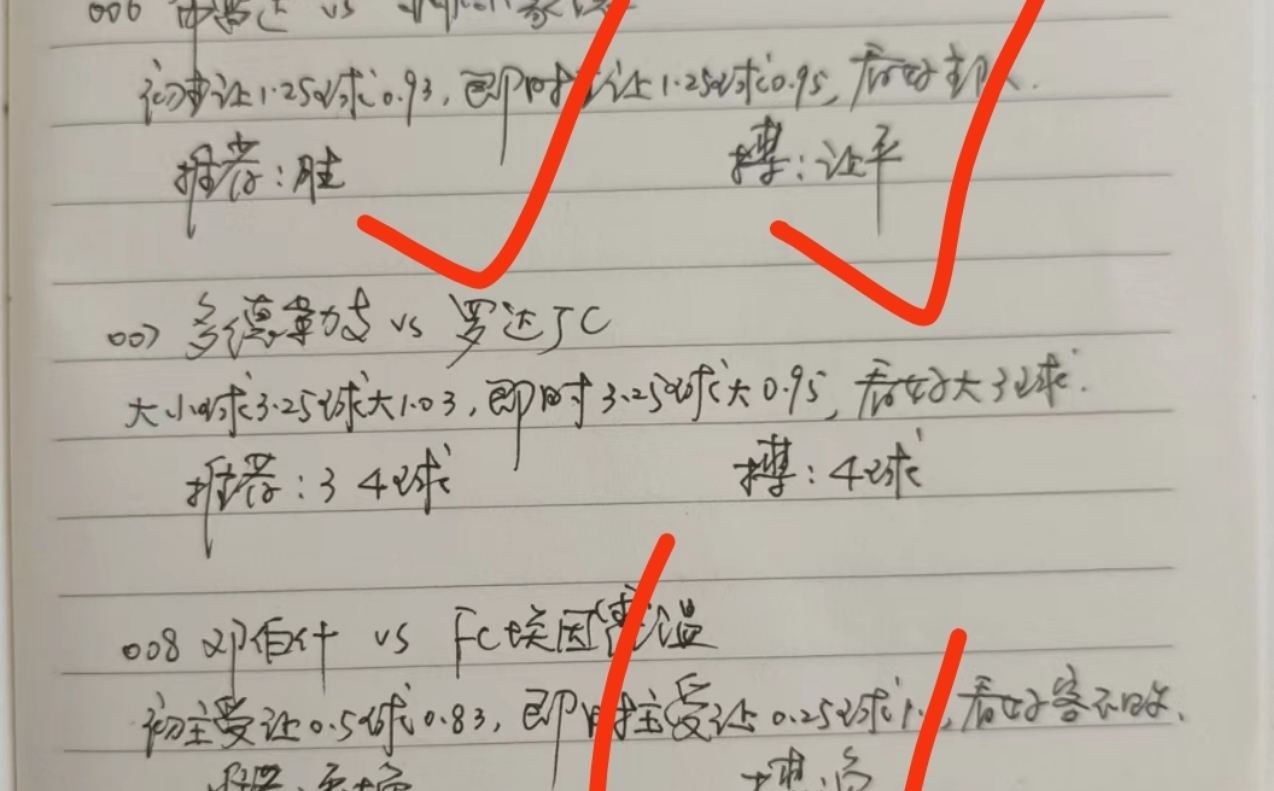 006 中 vs
初主让1.25球0.93,即时主让1.25球0.95,看好主队.
推荐:胜 搏:让平
007 多德勒支 vs 罗达JC
大小球3.25球大1.03,即时3.25球大0.95,看好大3球.
推荐:3 4球 搏:4球
008 邓伯什 vs FC埃因霍温
初主受让0.5球0.83,即时主受让0.25球1.,看好客不败、
推荐: 搏: